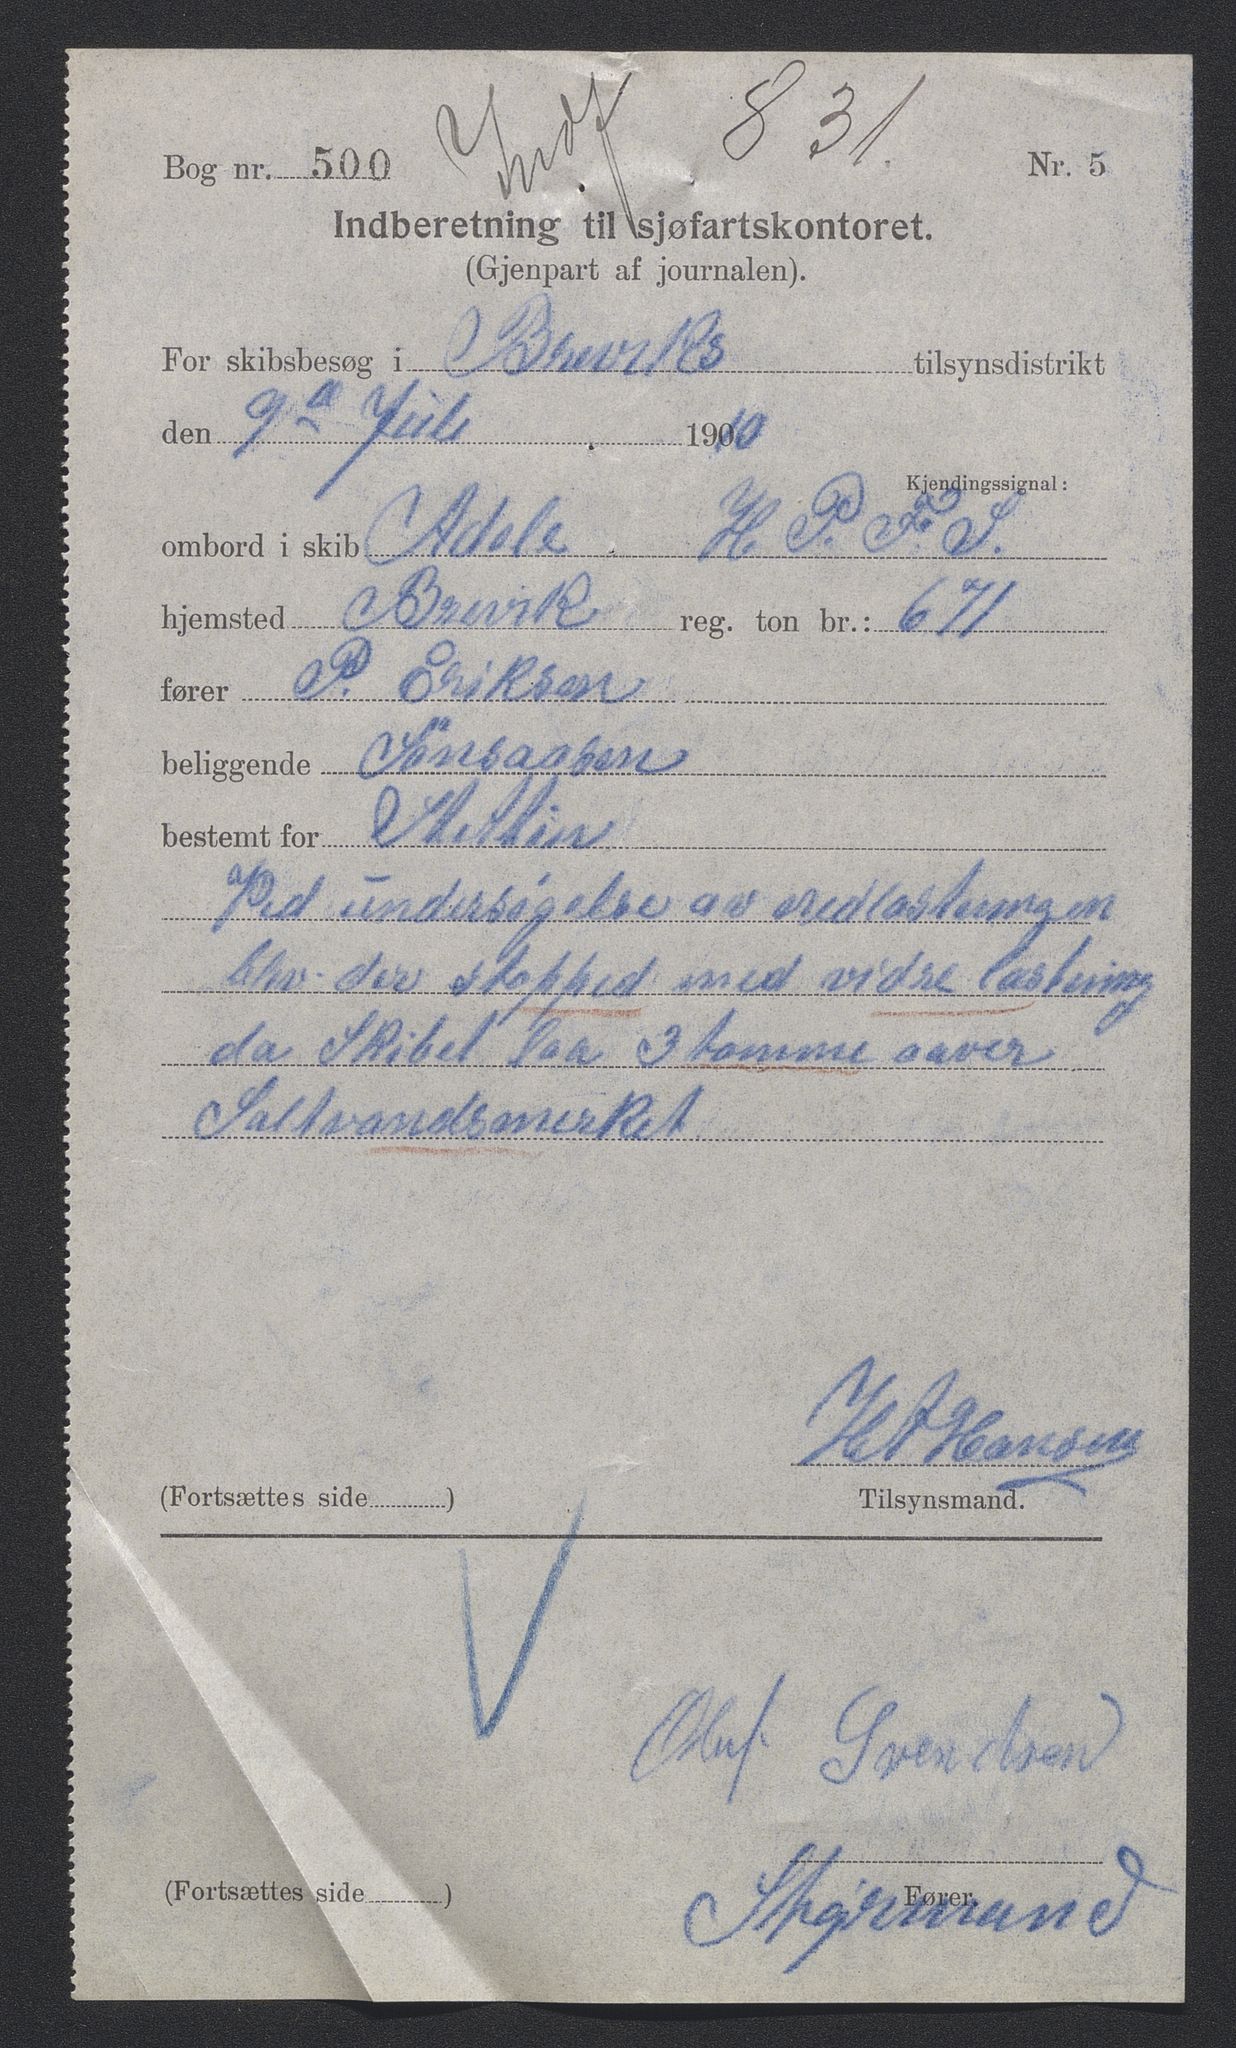 Indf 831.
Bog nr. 500 Nr. 5
Indberetning til sjøfartskontoret.
(Gjenpart af journalen).
For skibsbesøg i Breviks tilsynsdistrikt
den 9de Juli 1910
Kjendingssignal:
ombord i skib Adele H. P. F. S.
hjemsted Brevik reg. ton br.: 671
fører P. Eriksen
beliggende
bestemt for Stettin
Ved undersøgelse av nedlastningen
blev der stopped med vidre lastning
da Skibet laa 3 tomme aaver
Saltvandsmerket
H A Hansen
(Fortsættes side ) Tilsynsmand.
Oluf Svendsen
(Fortsættes side ) Fører.
Styrmand